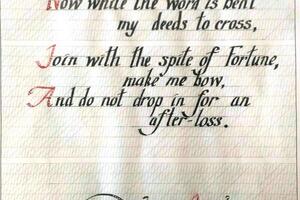 Now while the word is bent
my deeds to cross,
Join with the spite of Fortune,
make me bow,
And do not drop in for an
after-loss.